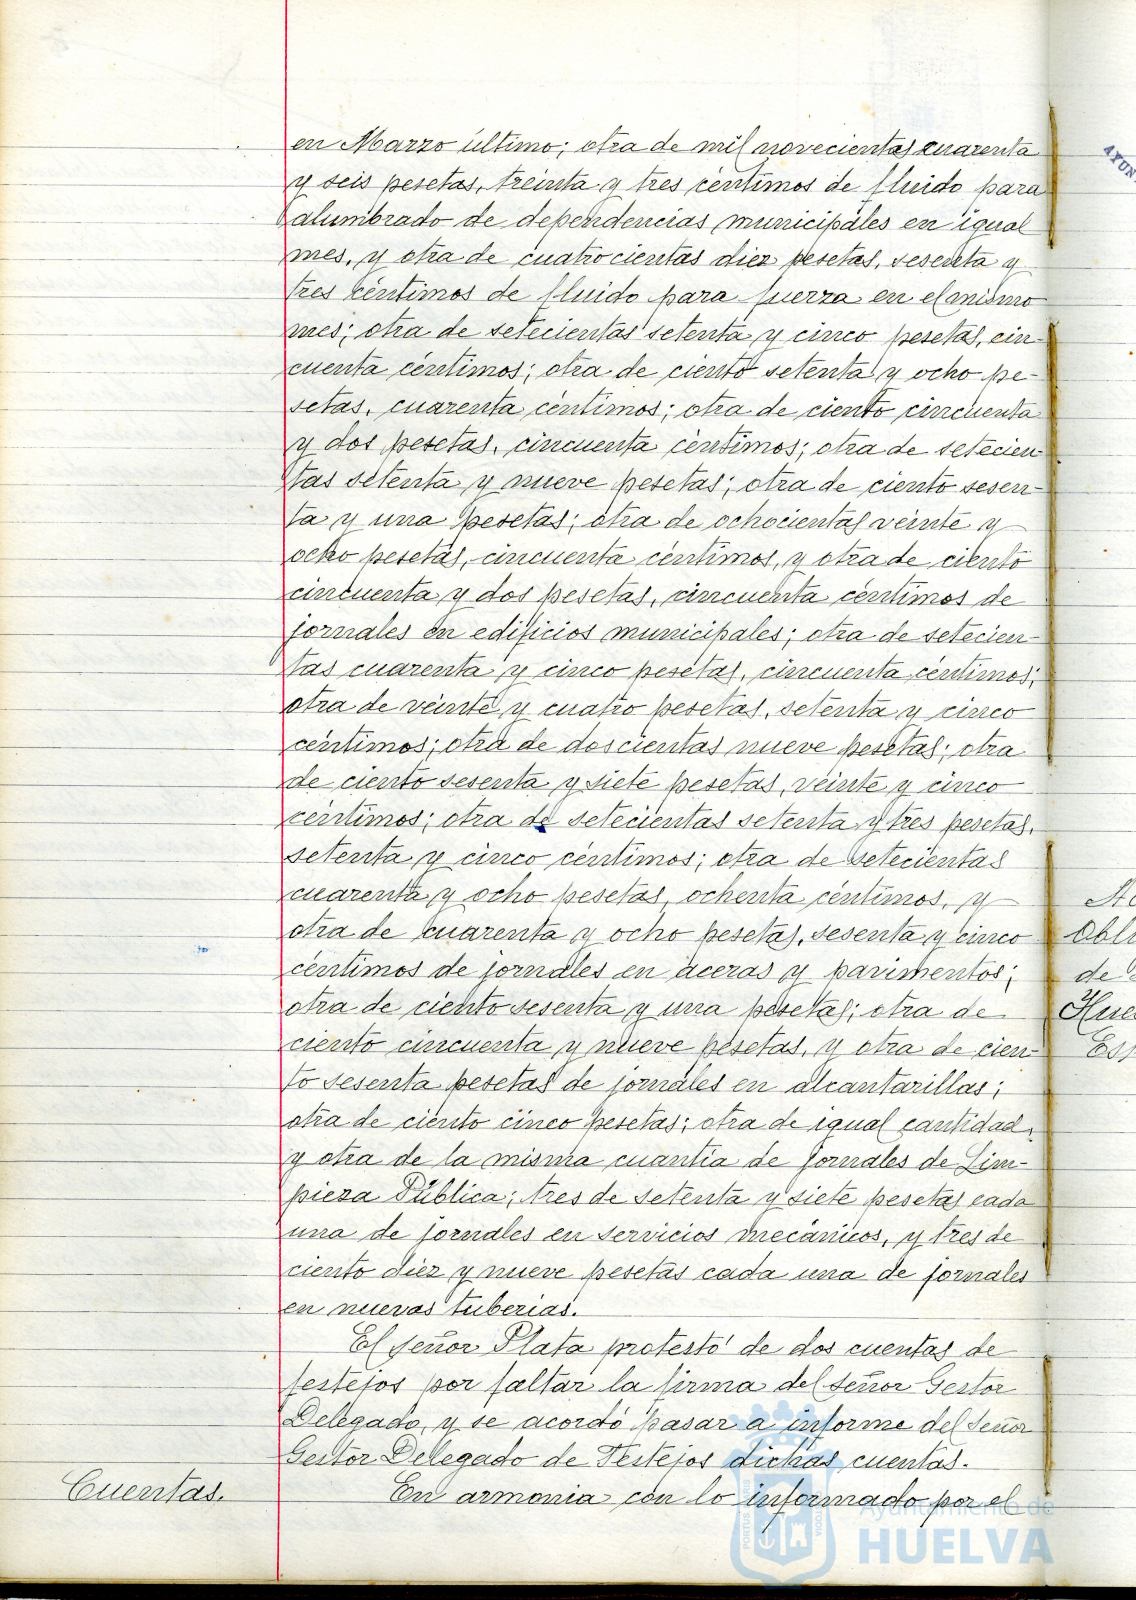 en Marzo último; otra de mil novecientas cuarenta
y seis pesetas, treinta y tres céntimos de fluido para
alumbrado de dependencias municipales en igual
mes, y otra de cuatrocientas diez pesetas, sesenta y
tres céntimos de fluido para fuerza en el mismo
mes; otra de setecientas setenta y cinco pesetas, cin-
cuenta céntimos; otra de ciento setenta y ocho pe-
setas, cuarenta céntimos; otra de ciento cincuenta
y dos pesetas, cincuenta céntimos; otra de setecien-
tas setenta y nueve pesetas; otra de ciento sesen-
ta y una pesetas; otra de ochocientas veinte y
ocho pesetas, cincuenta céntimos, y otra de ciento
cincuenta y dos pesetas, cincuenta céntimos de
jornales en edificios municipales; otra de setecien-
tas cuarenta y cinco pesetas, cincuenta céntimos;
otra de veinte y cuatro pesetas, setenta y cinco
céntimos; otra de doscientas nueve pesetas; otra
de ciento sesenta y siete pesetas, veinte y cinco
céntimos; otra de setecientas setenta y tres pesetas,
setenta y cinco céntimos; otra de setecientas
cuarenta y ocho pesetas, ochenta céntimos, y
otra de cuarenta y ocho pesetas, sesenta y cinco
céntimos de jornales en aceras y pavimentos;
otra de ciento sesenta y una pesetas; otra de
ciento cincuenta y nueve pesetas, y otra de cien-
to sesenta pesetas de jornales en alcantarillas;
otra de ciento cinco pesetas; otra de igual cantidad,
y otra de la misma cuantía de jornales de Lim-
pieza Pública; tres de setenta y siete pesetas cada
una de jornales en servicios mecánicos, y tres de
ciento diez y nueve pesetas cada una de jornales
en nuevas tuberías.
El señor Plata protestó de dos cuentas de
festejos por faltar la firma del señor Gestor
Delegado, y se acordó pasar a informe del señor
Gestor Delegado de Festejos dichas cuentas.
Cuentas. En armonía con lo informado por el
Ayuntamiento de
HUELVA